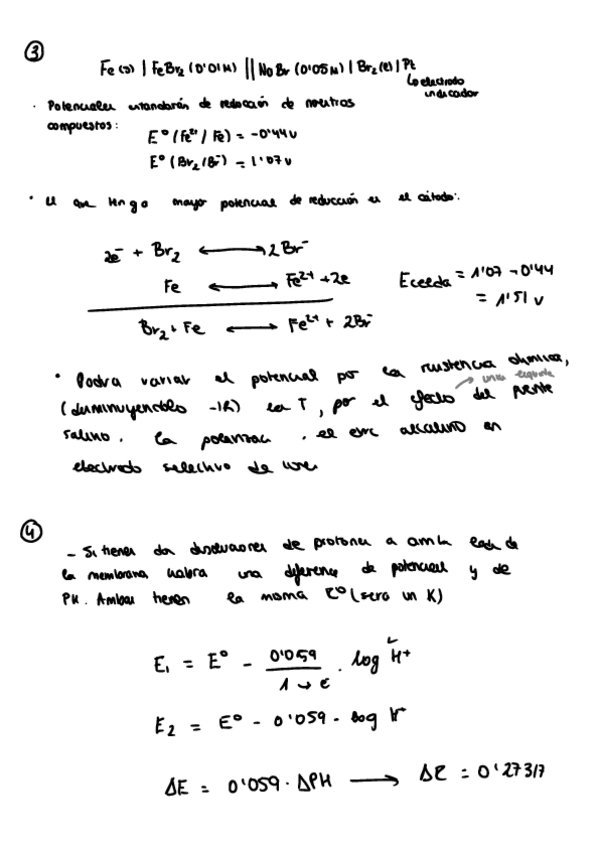 ③
Fe (s) | FeBr2 (0'01M) || NaBr (0'05M) | Br2(l) | Pt
↳ electrodo
indicador
· Potenciales estandares de reducción de nuestros
compuestos:
E° (Fe2+ / Fe) = -0'44v
E° (Br2/Br-) = 1'07v
· El que tenga mayor potencial de reducción es el cátodo:
2e- + Br2 ⟷ 2Br-
Fe ⟷ Fe2+ + 2e
Ecelda = 1'07 - 0'44
= 1'51 v
Br2 + Fe ⟷ Fe2+ + 2Br-
· Podra variar el potencial por la resistencia ohmica,
(disminuyendolo -IR) la T, por el efecto del puente
unión liquida
salino, la , el error alcalino en
electrodo selectivo de
④
- Si tienes dos disoluciones de protones a lado de
la membrana habra una diferencia de potencial y de
PH. Ambas tienen la misma E° (sera un K)
E1 = E° - 0'059 / 1 → e · log H+
E2 = E° - 0'059 · log H+
ΔE = 0'059 · ΔPH ⟶ ΔE = 0'2731